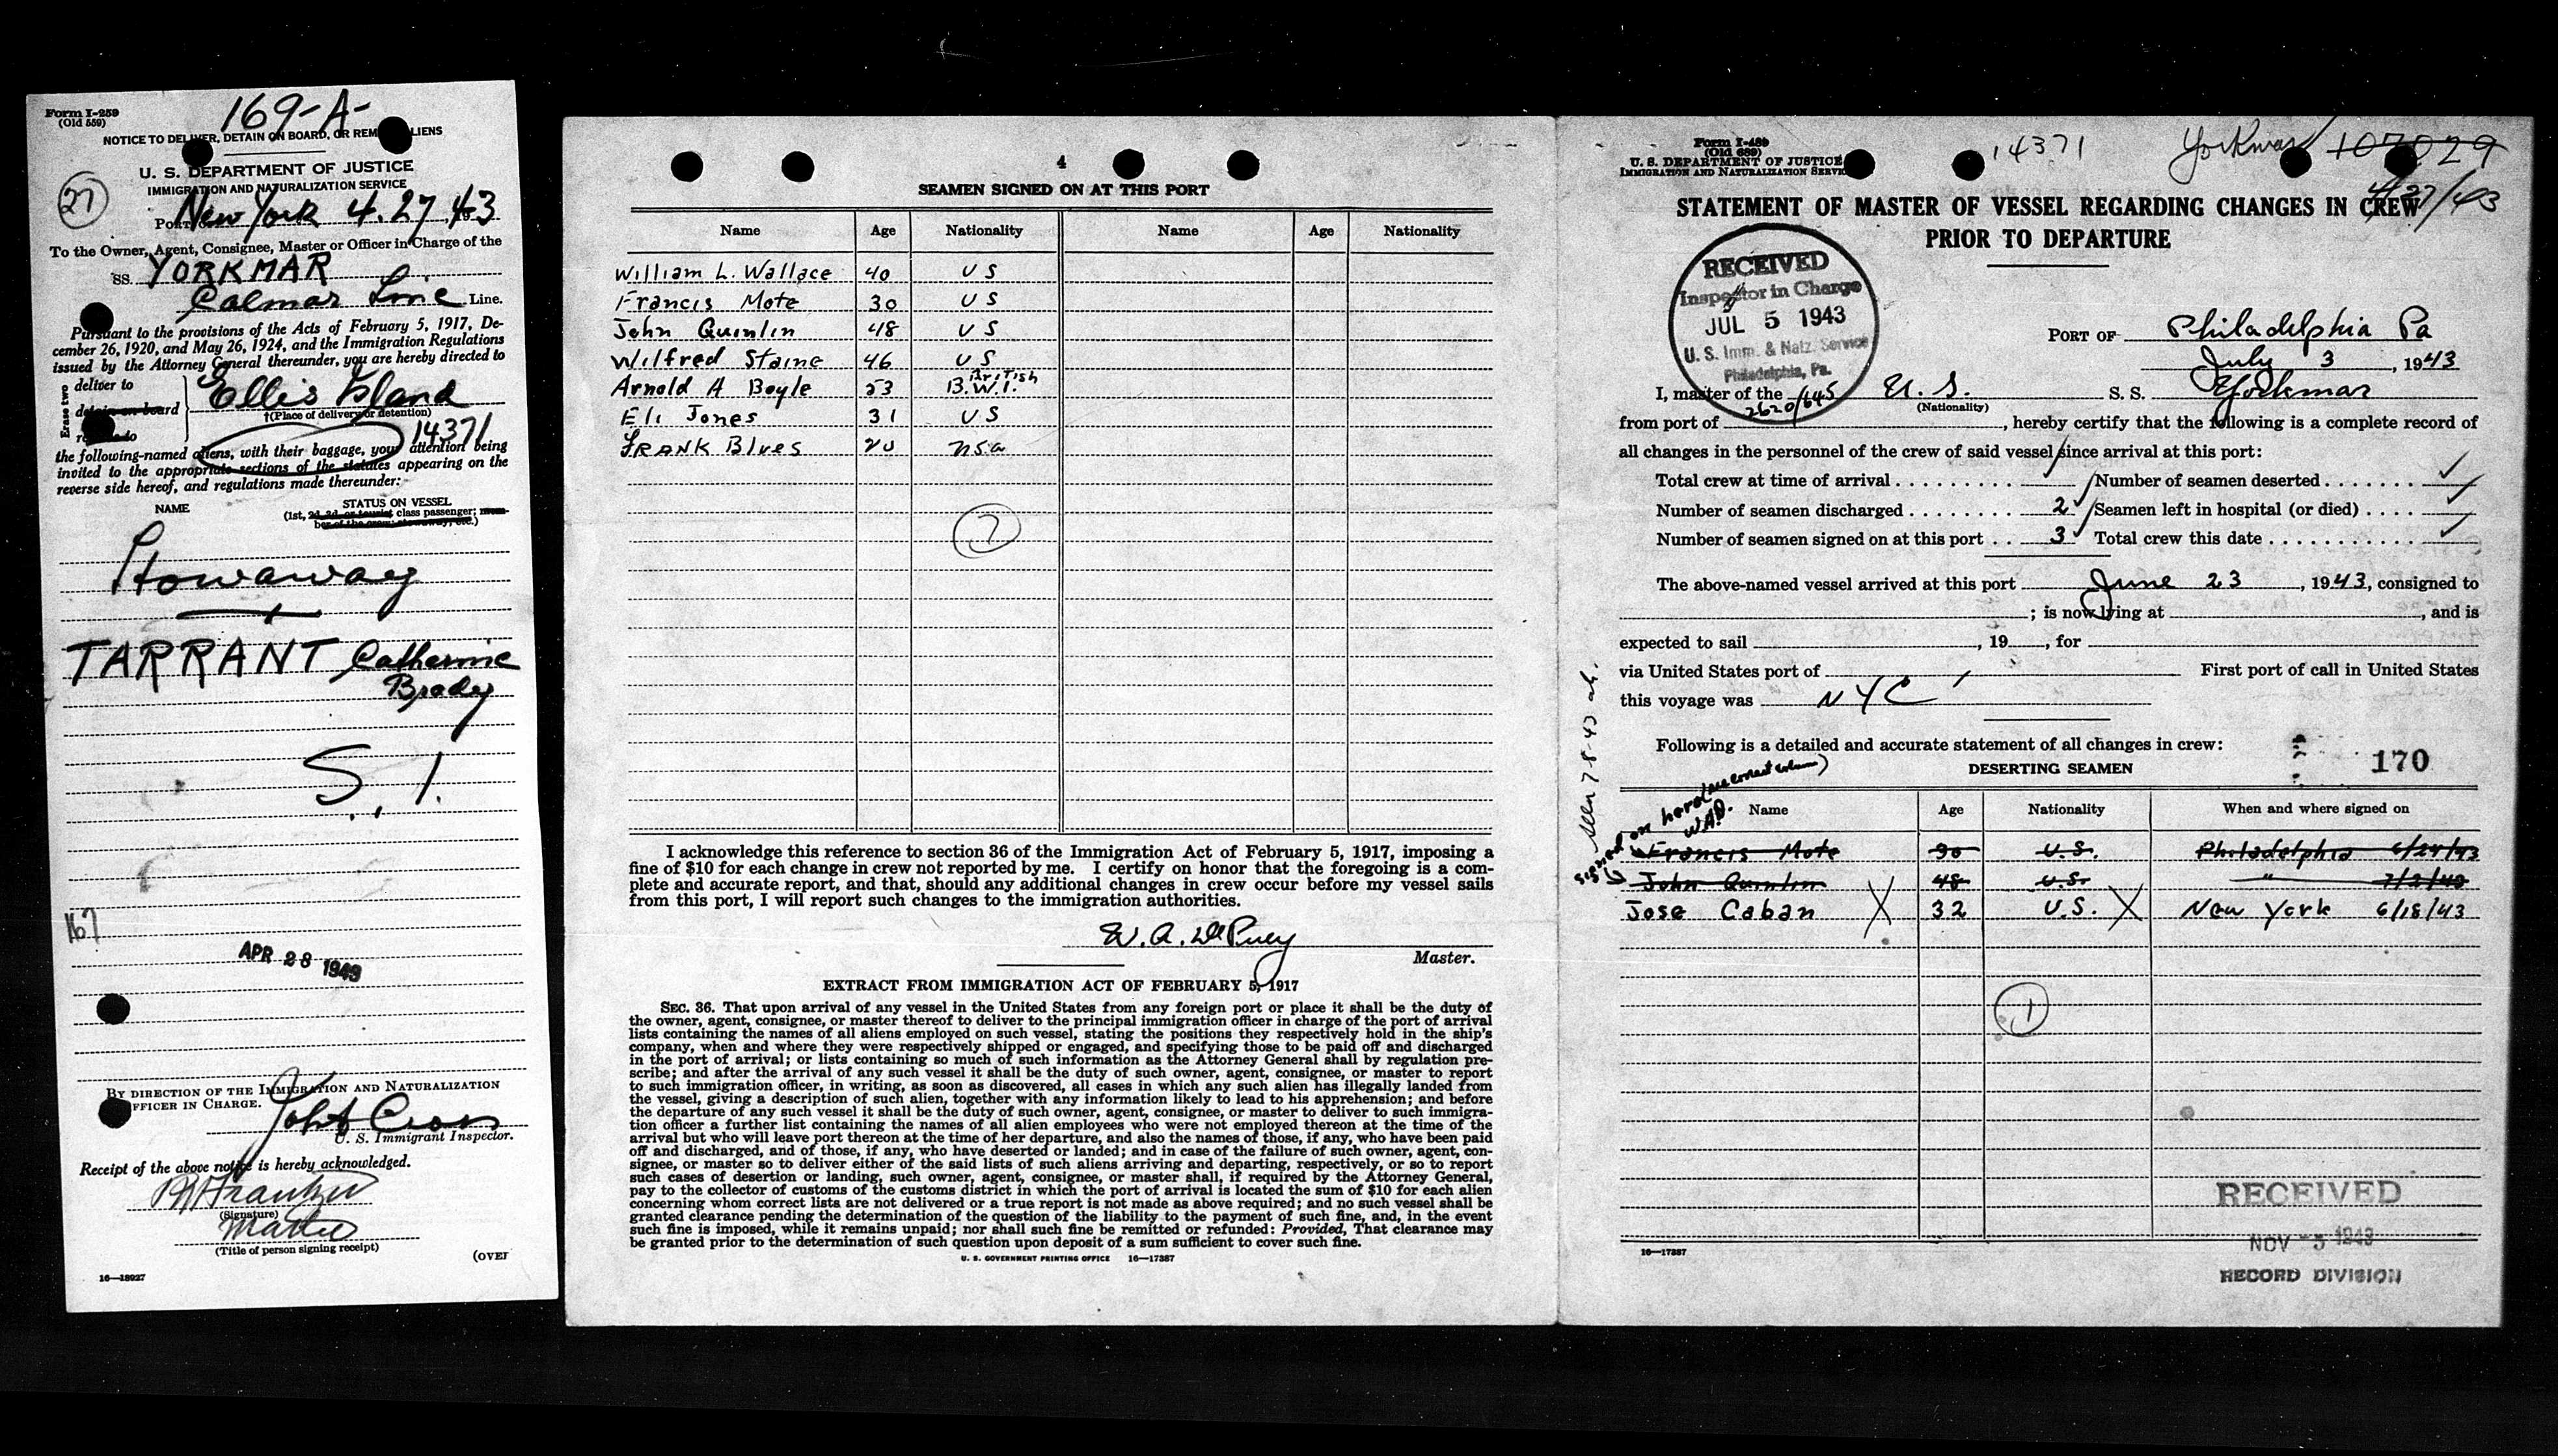 Form I-259
(Old 559)
169-A-
NOTICE TO DELIVER, DETAIN ON BOARD, OR REM ALIENS
U. S. DEPARTMENT OF JUSTICE
IMMIGRATION AND NATURALIZATION SERVICE
27
Port of New York 4.27, 1943
To the Owner, Agent, Consignee, Master or Officer in Charge of the
SS. YORKMAR
Calmar Line Line.
Pursuant to the provisions of the Acts of February 5, 1917, De-
cember 26, 1920, and May 26, 1924, and the Immigration Regulations
issued by the Attorney General thereunder, you are hereby directed to
Erase two
deliver to
detain on board
Ellis Island
†(Place of delivery or detention)
14371
the following-named aliens, with their baggage, your attention being
invited to the appropriate sections of the statutes appearing on the
reverse side hereof, and regulations made thereunder:
NAME
STATUS ON VESSEL
(1st, 2d, 3d, or tourist class passenger; mem-
ber of the crew; stowaway, etc.)
Stowaway
TARRANT Catherine
Brady
S. I.
167
APR 28 1943
By direction of the Immigration and Naturalization
Officer in Charge.
U. S. Immigrant Inspector.
Receipt of the above notice is hereby acknowledged.
(Signature)
Master
(Title of person signing receipt)
(OVER
16—18927
4
SEAMEN SIGNED ON AT THIS PORT
Name Age Nationality Name Age Nationality
William L. Wallace 40 US
Francis Mote 30 US
John Quinlin 48 US
Wilfred Staine 46 US
British
Arnold A Boyle 53 B.W.I.
Eli Jones 31 US
FRANK Blves 20 USa
7
I acknowledge this reference to section 36 of the Immigration Act of February 5, 1917, imposing a
fine of $10 for each change in crew not reported by me. I certify on honor that the foregoing is a com-
plete and accurate report, and that, should any additional changes in crew occur before my vessel sails
from this port, I will report such changes to the immigration authorities.
W. A. DePuey
Master.
EXTRACT FROM IMMIGRATION ACT OF FEBRUARY 5, 1917
Sec. 36. That upon arrival of any vessel in the United States from any foreign port or place it shall be the duty of
the owner, agent, consignee, or master thereof to deliver to the principal immigration officer in charge of the port of arrival
lists containing the names of all aliens employed on such vessel, stating the positions they respectively hold in the ship's
company, when and where they were respectively shipped or engaged, and specifying those to be paid off and discharged
in the port of arrival; or lists containing so much of such information as the Attorney General shall by regulation pre-
scribe; and after the arrival of any such vessel it shall be the duty of such owner, agent, consignee, or master to report
to such immigration officer, in writing, as soon as discovered, all cases in which any such alien has illegally landed from
the vessel, giving a description of such alien, together with any information likely to lead to his apprehension; and before
the departure of any such vessel it shall be the duty of such owner, agent, consignee, or master to deliver to such immigra-
tion officer a further list containing the names of all alien employees who were not employed thereon at the time of the
arrival but who will leave port thereon at the time of her departure, and also the names of those, if any, who have been paid
off and discharged, and of those, if any, who have deserted or landed; and in case of the failure of such owner, agent, con-
signee, or master so to deliver either of the said lists of such aliens arriving and departing, respectively, or so to report
such cases of desertion or landing, such owner, agent, consignee, or master shall, if required by the Attorney General,
pay to the collector of customs of the customs district in which the port of arrival is located the sum of $10 for each alien
concerning whom correct lists are not delivered or a true report is not made as above required; and no such vessel shall be
granted clearance pending the determination of the question of the liability to the payment of such fine, and, in the event
such fine is imposed, while it remains unpaid; nor shall such fine be remitted or refunded: Provided, That clearance may
be granted prior to the determination of such question upon deposit of a sum sufficient to cover such fine.
U. S. GOVERNMENT PRINTING OFFICE 16—17387
Form I-489
(Old 689)
U. S. DEPARTMENT OF JUSTICE
Immigration and Naturalization Service
14371
Yorkmar 107029
4/27/43
STATEMENT OF MASTER OF VESSEL REGARDING CHANGES IN CREW
PRIOR TO DEPARTURE
RECEIVED
Inspector in Charge
JUL 5 1943
U. S. Imm. & Natz. Service
Philadelphia, Pa.
2620/645
Port of Philadelphia Pa
July 3, 1943
I, master of the U.S. S. S. Yorkmar
(Nationality)
from port of , hereby certify that the following is a complete record of
all changes in the personnel of the crew of said vessel since arrival at this port:
Total crew at time of arrival Number of seamen deserted
Number of seamen discharged 2 Seamen left in hospital (or died)
Number of seamen signed on at this port 3 Total crew this date
The above-named vessel arrived at this port June 23, 1943, consigned to
; is now lying at , and is
expected to sail , 19 , for
via United States port of First port of call in United States
this voyage was NYC
Following is a detailed and accurate statement of all changes in crew:
170
DESERTING SEAMEN
Name Age Nationality When and where signed on
W.A.D.
Francis Mote 30 U.S. Philadelphia 6/24/43
John Quinlin 48 U.S. " 7/2/43
Jose Caban 32 U.S. New York 6/18/43
1
RECEIVED
NOV -5 1943
RECORD DIVISION
16—17387